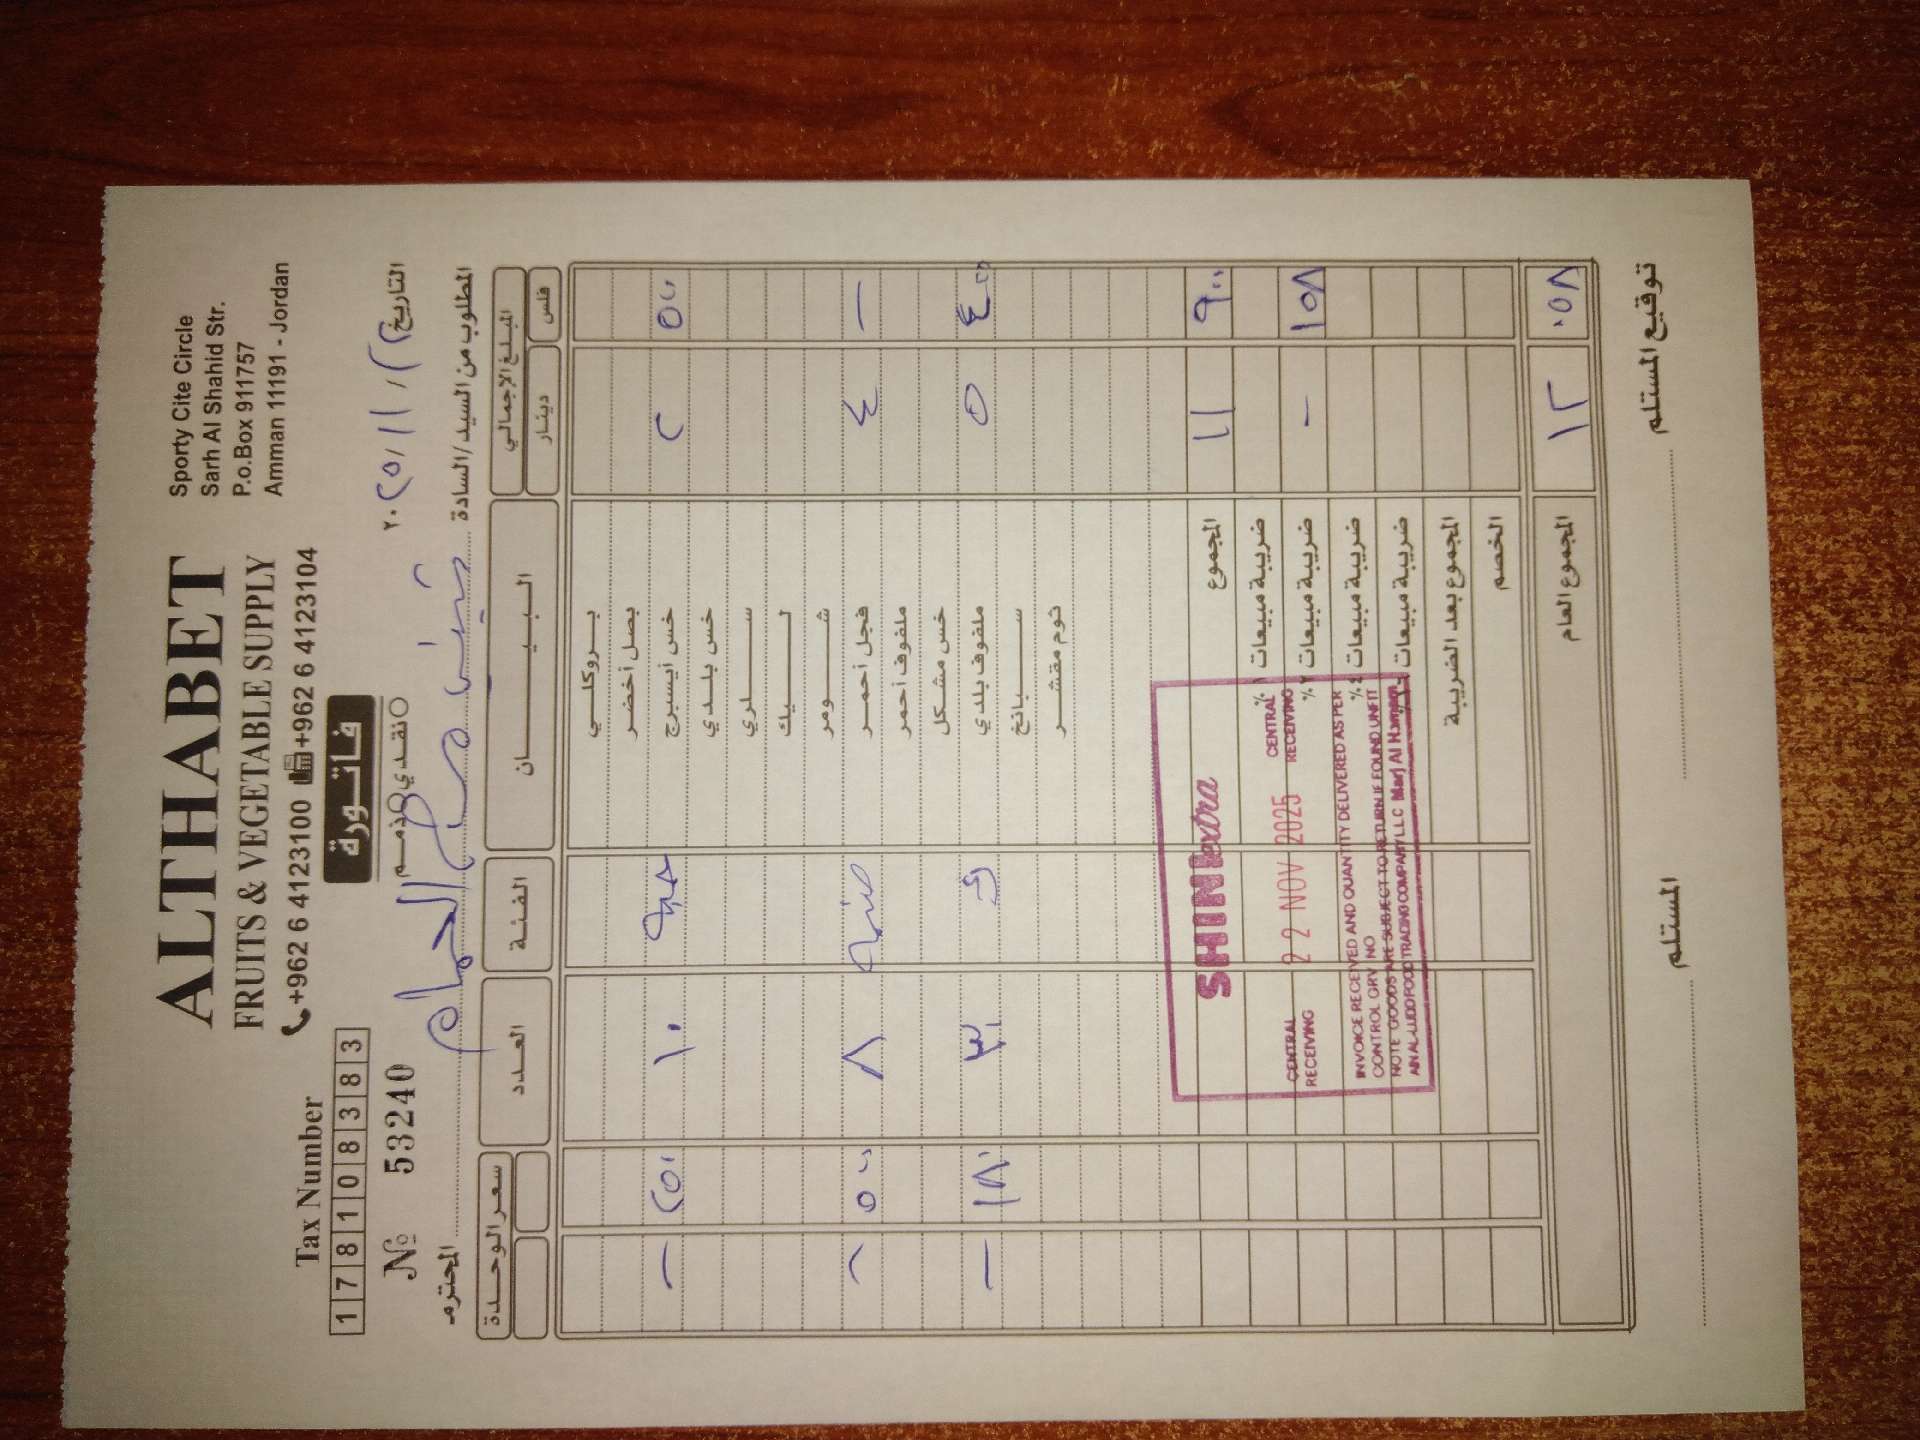 ALTHABET
FRUITS & VEGETABLE SUPPLY
+962 6 4123100 +962 6 4123104
Sporty Cite Circle
Sarh Al Shahid Str.
P.o.Box 911757
Amman 11191 - Jordan
Tax Number
178108383
فاتورة
نقدي ذمم
№ 53240
التاريخ / ١١ / ٢٠٢٥
المطلوب من السيد/السادة مرج الحمام المحترم
المبلغ الإجمالي البيان الفئة العدد سعر الوحدة
فلس دينار
بروكلي
بصل أخضر
٥٠٠ ٢ خس أيسبرج حبة ١٠ ٢٥٠ —
خس بلدي
سلري
ليك
شومر
— ٤ فجل أحمر ٨ ٥٠٠ —
ملفوف أحمر
خس مشكل
٤٠٠ ٥ ملفوف بلدي ٣٠ ١٨٠ —
سبانخ
ثوم مقشر
٩٠٠ ١١ المجموع
ضريبة مبيعات ١٪
١٥٨ - ضريبة مبيعات ٢٪
ضريبة مبيعات ٤٪
ضريبة مبيعات
المجموع بعد الضريبة
الخصم
٠٥٨ ١٢ المجموع العام
SHINI extra
CENTRAL RECEIVING 22 NOV 2025 CENTRAL RECEIVING
INVOICE RECEIVED AND QUANTITY DELIVERED AS PER
CONTROL QRV NO
NOTE GOODS ARE SUBJECT TO RETURN IF FOUND UNFIT
FOOD TRADING COMPANY LLC Marj Al Hamam
توقيع المستلم
المستلم